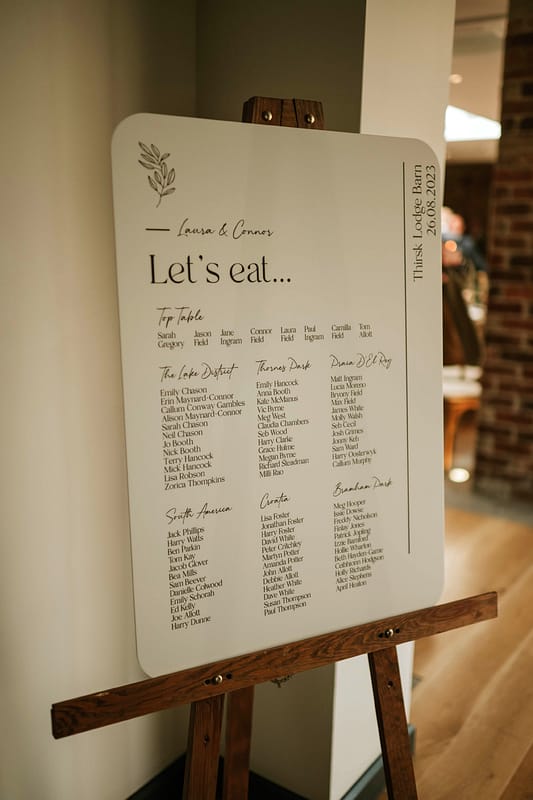 Laura & Connor
Let's eat...
Thirsk Lodge Barn
26.08.2023
Top Table
Sarah Gregory
Jason Field
Jane Ingram
Connor Field
Laura Field
Paul Ingram
Camilla Field
Tom Allott
The Lake District
Emily Chason
Erin Maynard-Connor
Callum Conway Gambles
Alison Maynard-Connor
Sarah Chason
Neil Chason
Jo Booth
Nick Booth
Terry Hancock
Mick Hancock
Lisa Robson
Zorica Thompkins
Thornes Park
Emily Hancock
Anna Booth
Kate McManus
Vic Byrne
Meg West
Claudia Chambers
Seb Wood
Harry Clarke
Grace Hulme
Megan Byrne
Richard Steadman
Milli Rao
Praia D'El Rey
Matt Ingram
Lucia Moreno
Bryony Field
Max Field
James White
Molly Walsh
Seb Cecil
Josh Grimes
Jonny Keh
Sam Ward
Harry Oosterwyk
Callum Murphy
South America
Jack Phillips
Harry Watts
Ben Parkin
Tom Kay
Jacob Glover
Bea Mills
Sam Beever
Danielle Colwood
Emily Schorah
Ed Kelly
Joe Allott
Harry Dunne
Croatia
Lisa Foster
Jonathan Foster
Harry Foster
David White
Peter Critchley
Martyn Potter
Amanda Potter
John Allott
Debbie Allott
Heather White
Dave White
Susan Thompson
Paul Thompson
Bramham Park
Meg Hooper
Issie Dowse
Freddy Nicholson
Finlay Jones
Patrick Jopling
Izzie Bamford
Hollie Wharton
Beth Hayden-Game
Ceibheinn Hodgson
Holly Richards
Alice Stephens
April Heaton